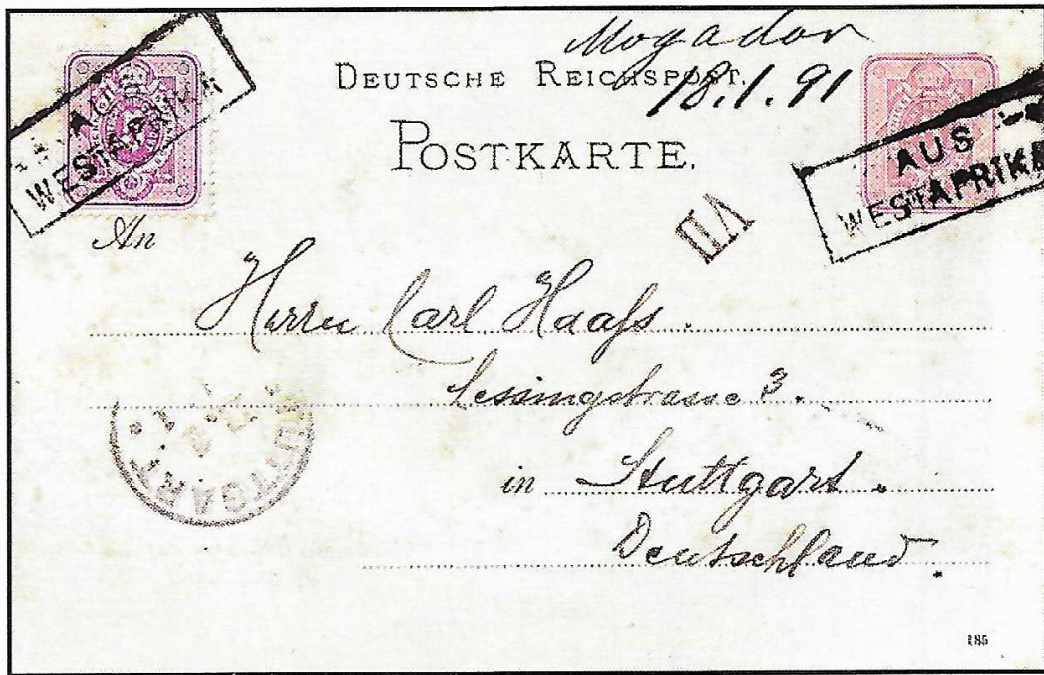 Mogador
DEUTSCHE REICHSPOST.
18.1.91
POSTKARTE.
AUS
WESTAFRIKA
AUS
WESTAFRIKA
VII
An
Herrn Carl Haafs.
Lessingstrasse 3.
in Stuttgart.
Deutschland.
STUTTGART
185